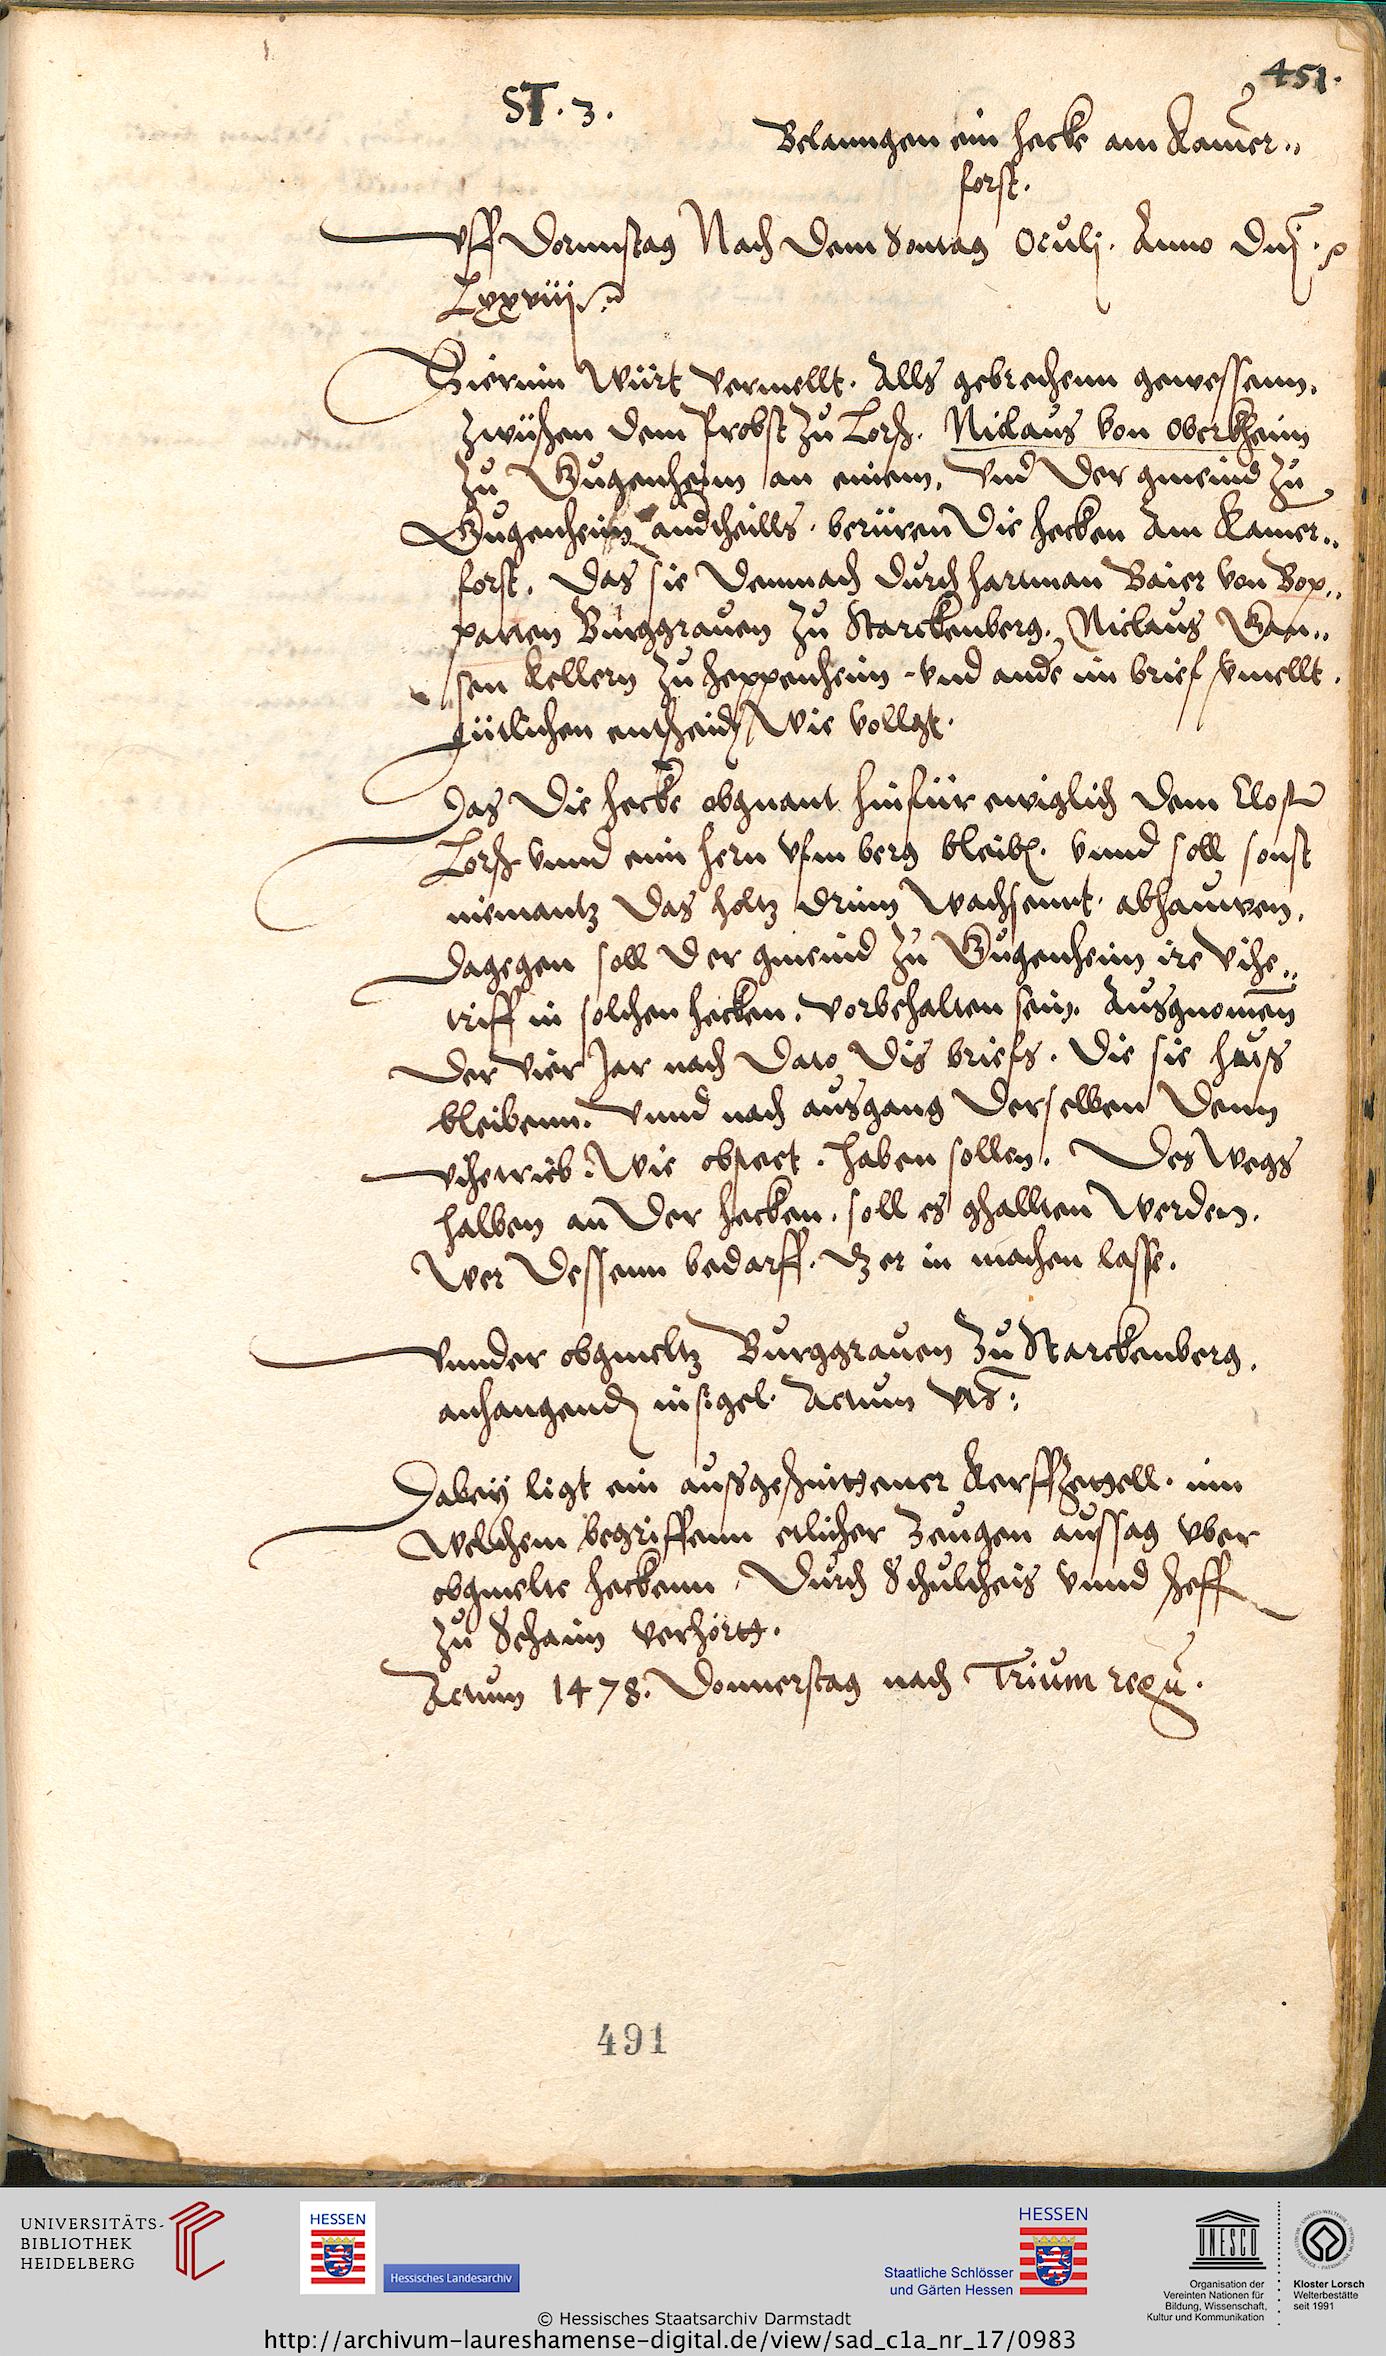 451.
ST. 3.
Belanngen ein hecke am Kamer„
forst.
Uff Dornnstag Nach Dem Sontag Oculj. Anno Dnj.
Lxxviij
Hierinn Würt Vermellt. Alls gebrechenn gewessenn.
Zwüschen Dem Probst Zu Lorsch. Niclaus von Oberkheim
Zu Gugenheim an einem. Vnd Der gmeind Zu
Gugenheim andtheills. berüren Die Hecken Am Kamer„
forst. Das sie Demnach Durch Hartman Baier von Bop„
parten Burggrauen Zu Starckenberg. Niclaus Gan„
sen Kellern Zu Heppenheim. Vnd andere im brief vermellt.
gütlichen entscheiden Wie vollgt.
Das Die Hecke obgnant hinfür ewiglich Dem Closter
Lorsch vnnd einn Hern Vfm berg bleiben. Vnnd soll sonst
niemantz Das holtz Drinn Wachsennt. abhauwen.
Dagegen soll Der gmeind Zu Gugenheim ire Vihe„
triff in solchen Hecken. Vorbehalten sein. Ausgnomen
Der Vier Jar nach Dato Dis briefs. Die sie haus
bleibenn. Vnnd nach ausgang Derselben Denn
Vihetrieb. Wie obstet. haben sollen. Des Wegs
halben an Der Hecken. soll es ghallten Werden.
Wer Dessenn bedarff. dz er in machen lasse.
Vnnder obgmeltz Burggrauen Zu Starckenberg.
anhangenden insigel. Actum Uts:
Dabey ligt ein aussgeschnittener Kerffzettell. inn
Welchem begriffenn etlicher Zeugen aussag vber
obgmelte Heckenn. Durch Schultheis vnnd scheff
Zu Schaim verhörtt.
Actum 1478. Donnerstag nach Trium regu.
491
UNIVERSITÄTS-
BIBLIOTHEK
HEIDELBERG
HESSEN
Hessisches Landesarchiv
HESSEN
Staatliche Schlösser
und Gärten Hessen
UNESCO
Organisation der
Vereinten Nationen für
Bildung, Wissenschaft,
Kultur und Kommunikation
Kloster Lorsch
Welterbestätte
seit 1991
© Hessisches Staatsarchiv Darmstadt
http://archivum-laureshamense-digital.de/view/sad_c1a_nr_17/0983